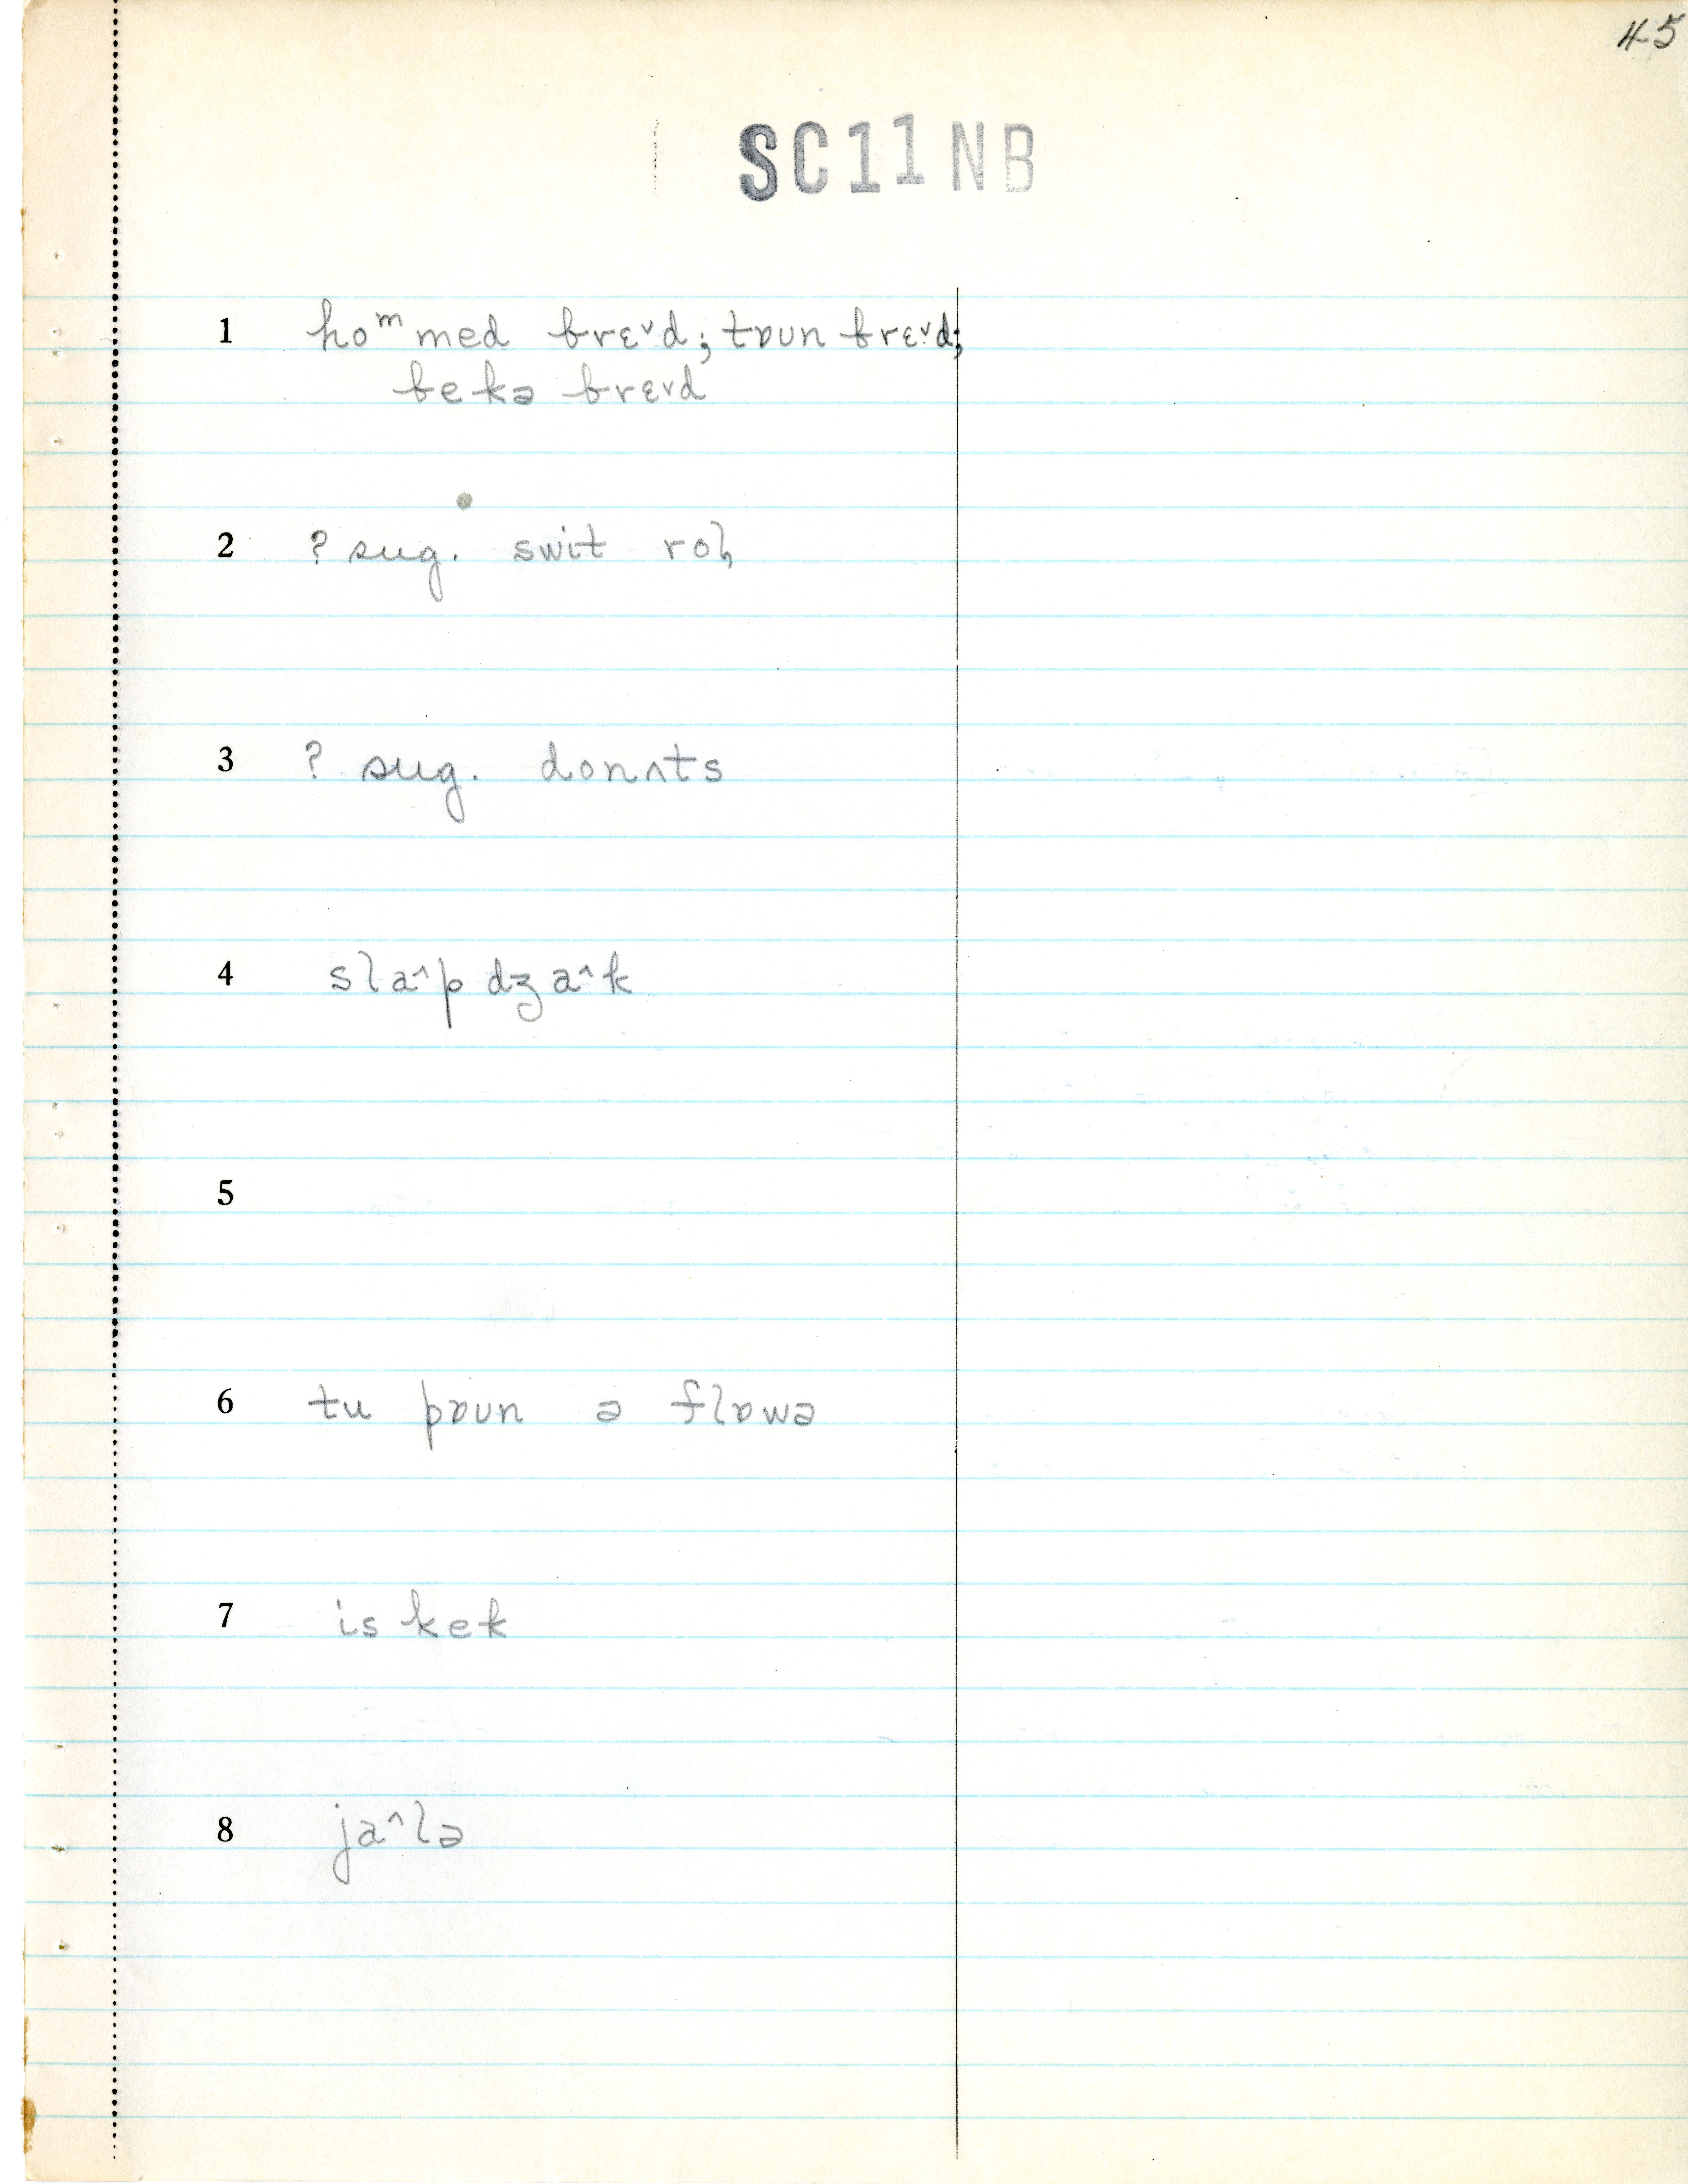 45
SC11NB
1 hoᵐ med brɛ˅d; tɒun brɛ˅d;
bekə brɛ˅d
2 ? sug. swit rol̥
3 ? sug. donʌts
4 sla^p dʒa^k
5
6 tu pɒun ə flɒwə
7 is kek
8 ja^lə